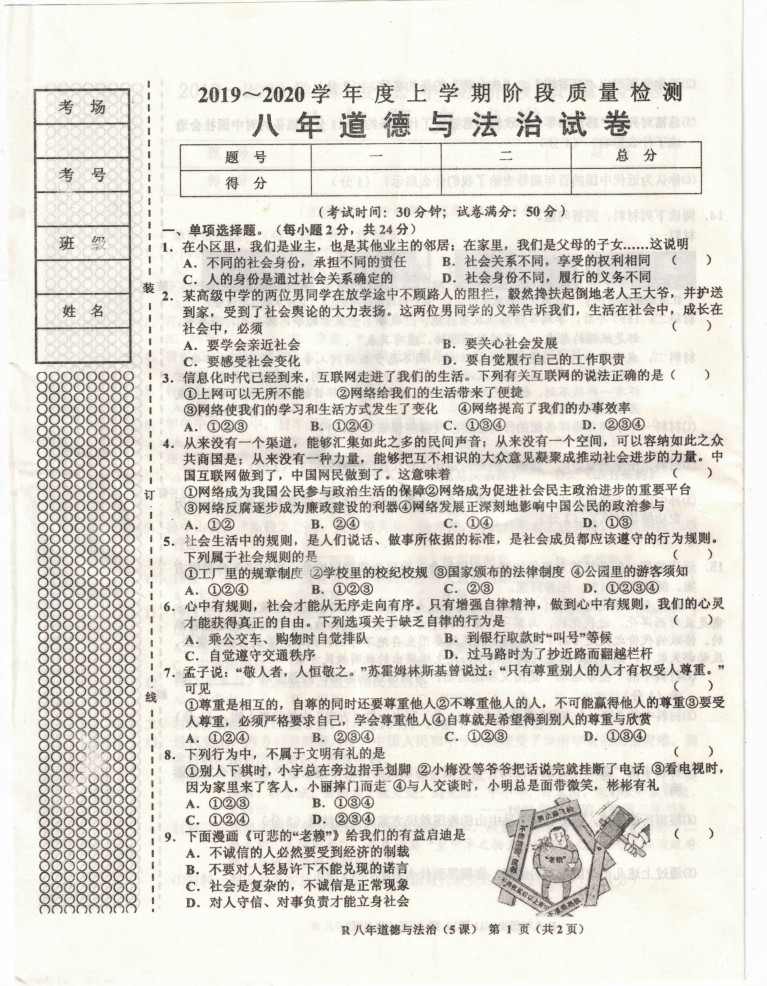 考 场
考 号
班 级
姓 名
装
订
线
2019～2020学年度上学期阶段质量检测
八年道德与法治试卷
题 号 一 二 总 分
得 分
（考试时间：30分钟；试卷满分：50分）
一、单项选择题。（每小题2分，共24分）
1. 在小区里，我们是业主，也是其他业主的邻居；在家里，我们是父母的子女……这说明
A. 不同的社会身份，承担不同的责任 B. 社会关系不同，享受的权利相同 （ ）
C. 人的身份是通过社会关系确定的 D. 社会身份不同，履行的义务不同
2. 某高级中学的两位男同学在放学途中不顾路人的阻拦，毅然搀扶起倒地老人王大爷，并护送
到家，受到了社会舆论的大力表扬。这两位男同学的义举告诉我们，生活在社会中，成长在
社会中，必须 （ ）
A. 要学会亲近社会 B. 要关心社会发展
C. 要感受社会变化 D. 要自觉履行自己的工作职责
3. 信息化时代已经到来，互联网走进了我们的生活。下列有关互联网的说法正确的是（ ）
①上网可以无所不能 ②网络给我们的生活带来了便捷
③网络使我们的学习和生活方式发生了变化 ④网络提高了我们的办事效率
A. ①②③ B. ①②④ C. ①③④ D. ②③④
4. 从来没有一个渠道，能够汇集如此之多的民间声音；从来没有一个空间，可以容纳如此之众
共商国是；从来没有一种力量，能够把互不相识的大众意见凝聚成推动社会进步的力量。中
国互联网做到了，中国网民做到了。这意味着 （ ）
①网络成为我国公民参与政治生活的保障②网络成为促进社会民主政治进步的重要平台
③网络反腐逐步成为廉政建设的利器④网络发展正深刻地影响中国公民的政治参与
A. ①② B. ②④ C. ①④ D. ①③
5. 社会生活中的规则，是人们说话、做事所依据的标准，是社会成员都应该遵守的行为规则。
下列属于社会规则的是 （ ）
①工厂里的规章制度 ②学校里的校纪校规 ③国家颁布的法律制度 ④公园里的游客须知
A. ①②④ B. ①②③ C. ②③ D. ①②③④
6. 心中有规则，社会才能从无序走向有序。只有增强自律精神，做到心中有规则，我们的心灵
才能获得真正的自由。下列选项关于缺乏自律的行为是 （ ）
A. 乘公交车、购物时自觉排队 B. 到银行取款时“叫号”等候
C. 自觉遵守交通秩序 D. 过马路时为了抄近路而翻越栏杆
7. 孟子说：“敬人者，人恒敬之。”苏霍姆林斯基曾说过：“只有尊重别人的人才有权受人尊重。”
可见 （ ）
①尊重是相互的，自尊的同时还要尊重他人②不尊重他人的人，不可能赢得他人的尊重③要受
人尊重，必须严格要求自己，学会尊重他人④自尊就是希望得到别人的尊重与欣赏
A. ①②④ B. ②③④ C. ①②③ D. ①③④
8. 下列行为中，不属于文明有礼的是 （ ）
①别人下棋时，小宇总在旁边指手划脚 ②小梅没等爷爷把话说完就挂断了电话 ③看电视时，
因为家里来了客人，小丽摔门而走 ④与人交谈时，小明总是面带微笑，彬彬有礼
A. ①②③ B. ①③④
C. ①②④ D. ②③④
9. 下面漫画《可悲的“老赖”》给我们的有益启迪是 （ ）
A. 不诚信的人必然要受到经济的制裁
B. 不要对人轻易许下不能兑现的诺言
C. 社会是复杂的，不诚信是正常现象
D. 对人守信、对事负责才能立身社会
“老赖”
R 八年道德与法治（5课） 第 1 页（共2页）